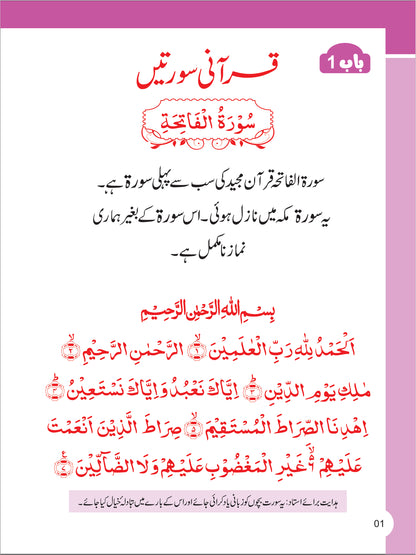 باب 1
قرآنی سورتیں
سُوْرَةُ الْفَاتِحَةِ
سورۃ الفاتحہ قرآن مجید کی سب سے پہلی سورۃ ہے۔
یہ سورۃ مکہ میں نازل ہوئی۔ اس سورۃ کے بغیر ہماری
نماز نامکمل ہے۔
بِسْمِ اللّٰهِ الرَّحْمٰنِ الرَّحِیْمِ
اَلْحَمْدُ لِلّٰهِ رَبِّ الْعٰلَمِیْنَ ۙ﴿۱﴾ الرَّحْمٰنِ الرَّحِیْمِ ۙ﴿۲﴾
مٰلِكِ یَوْمِ الدِّیْنِ ؕ﴿۳﴾ اِیَّاكَ نَعْبُدُ وَ اِیَّاكَ نَسْتَعِیْنُ ؕ﴿۴﴾
اِهْدِنَا الصِّرَاطَ الْمُسْتَقِیْمَ ۙ﴿۵﴾ صِرَاطَ الَّذِیْنَ اَنْعَمْتَ
عَلَیْهِمْ ۙ۬﴿۶﴾ غَیْرِ الْمَغْضُوْبِ عَلَیْهِمْ وَ لَا الضَّآلِّیْنَ ﴿۷﴾
ہدایت برائے استاد: یہ سورت بچوں کو زبانی یاد کرائی جائے اور اس کے بارے میں تبادلہ خیال کیا جائے۔
01